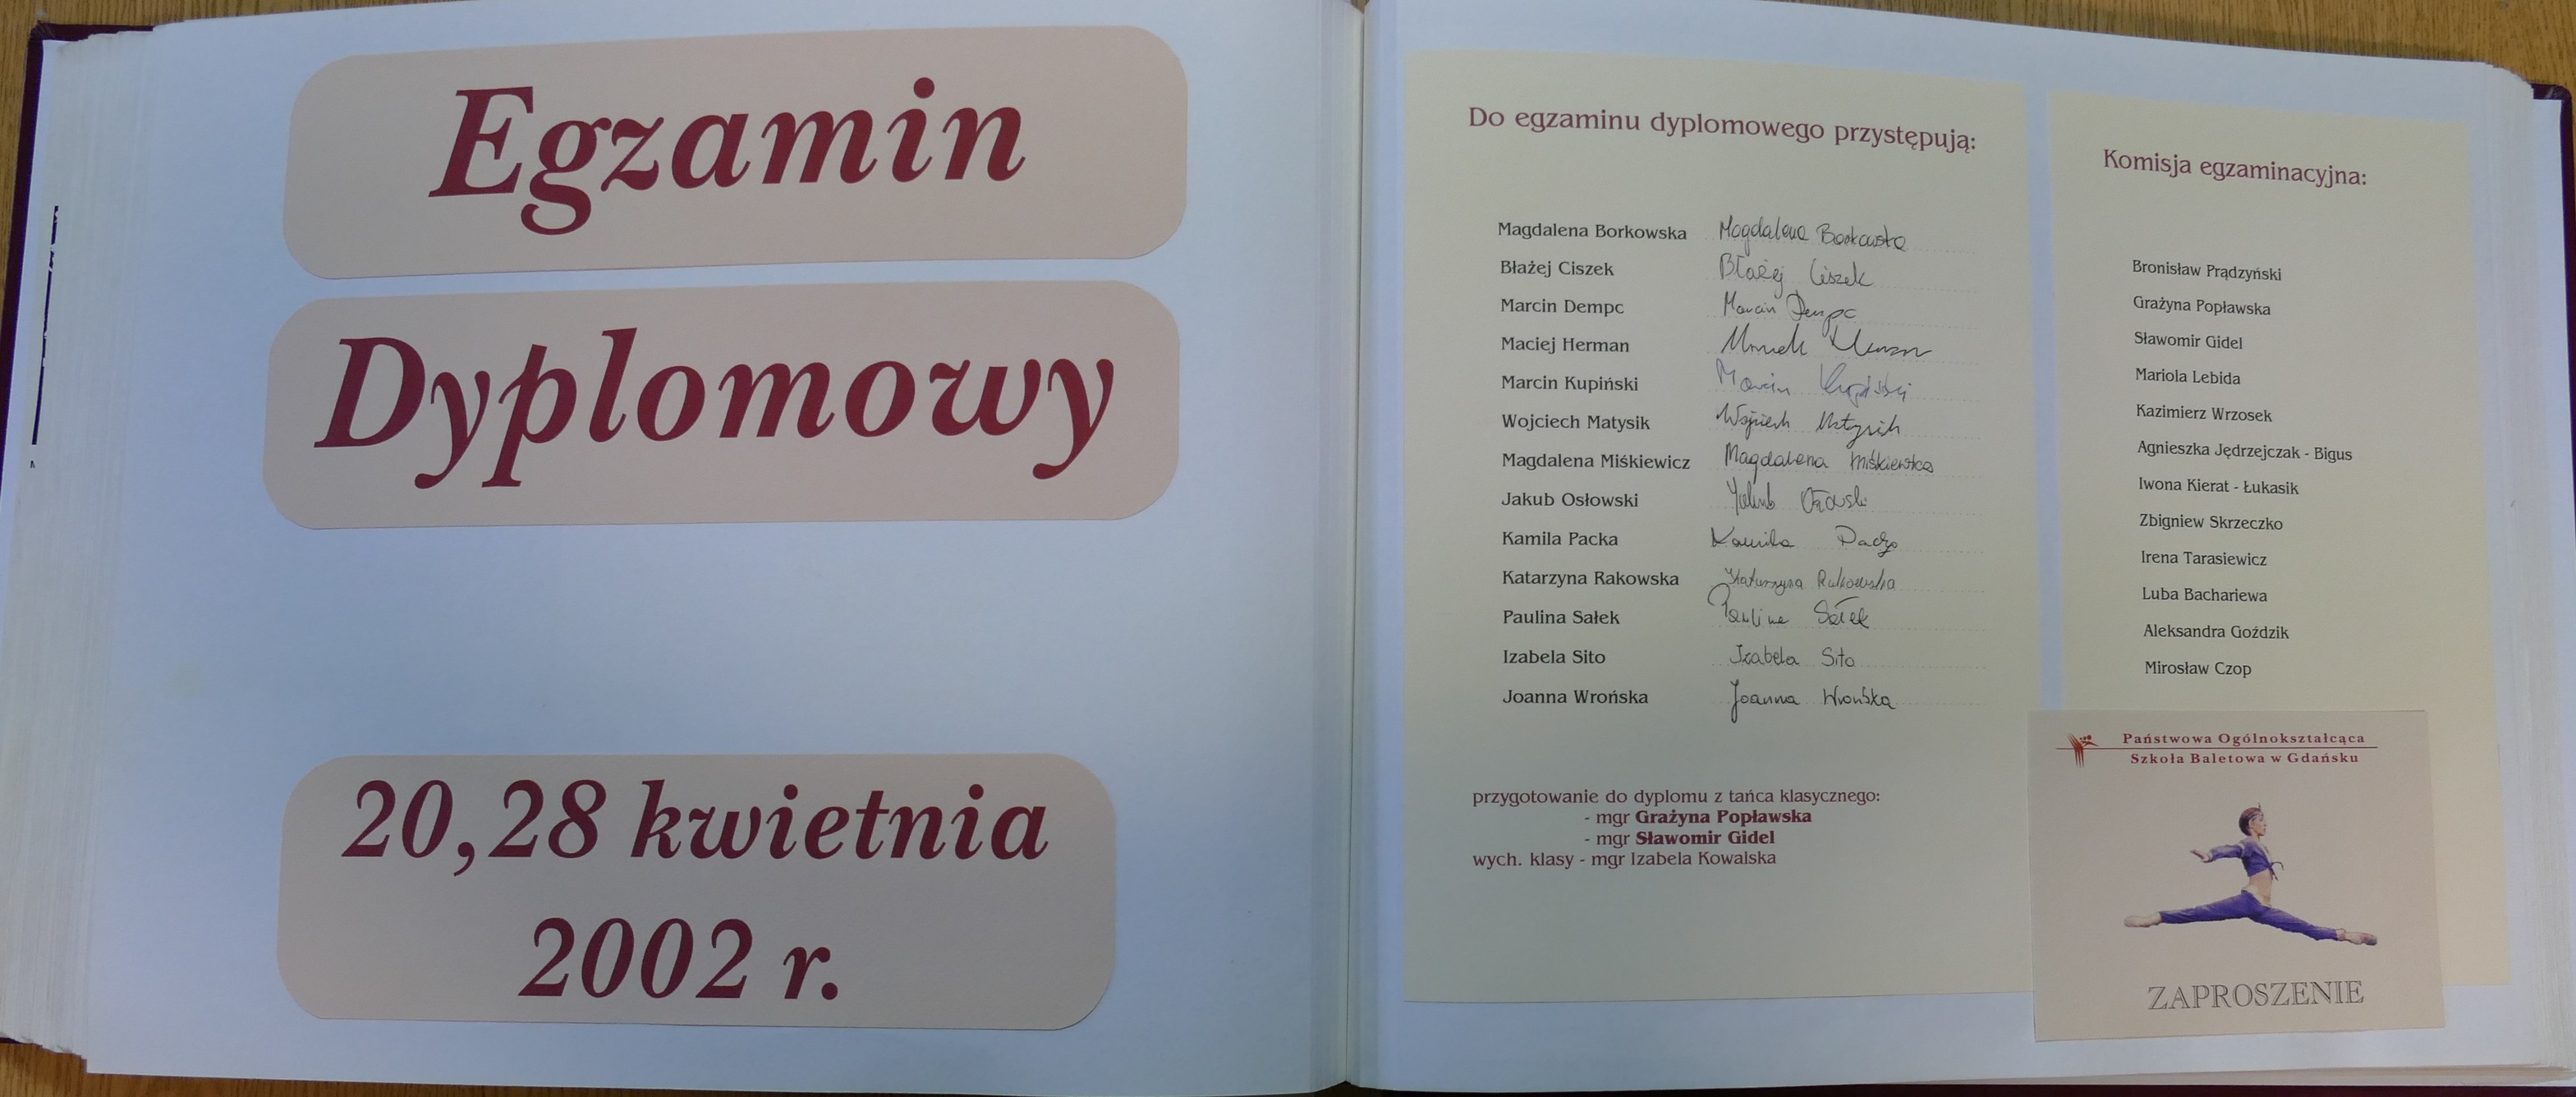 Egzamin
Dyplomowy
20,28 kwietnia
2002 r.
Do egzaminu dyplomowego przystępują:
Magdalena Borkowska Magdalena Borkowska
Błażej Ciszek Błażej Ciszek
Marcin Dempc Marcin Dempc
Maciej Herman
Marcin Kupiński Marcin Kupiński
Wojciech Matysik Wojciech Matysik
Magdalena Miśkiewicz Magdalena Miśkiewicz
Jakub Osłowski Jakub Osłowski
Kamila Packa Kamila Packa
Katarzyna Rakowska Katarzyna Rakowska
Paulina Sałek Paulina Sałek
Izabela Sito Izabela Sito
Joanna Wrońska Joanna Wrońska
przygotowanie do dyplomu z tańca klasycznego:
- mgr Grażyna Popławska
- mgr Sławomir Gidel
wych. klasy - mgr Izabela Kowalska
Komisja egzaminacyjna:
Bronisław Prądzyński
Grażyna Popławska
Sławomir Gidel
Mariola Lebida
Kazimierz Wrzosek
Agnieszka Jędrzejczak - Bigus
Iwona Kierat - Łukasik
Zbigniew Skrzeczko
Irena Tarasiewicz
Luba Bachariewa
Aleksandra Goździk
Mirosław Czop
Państwowa Ogólnokształcąca
Szkoła Baletowa w Gdańsku
ZAPROSZENIE